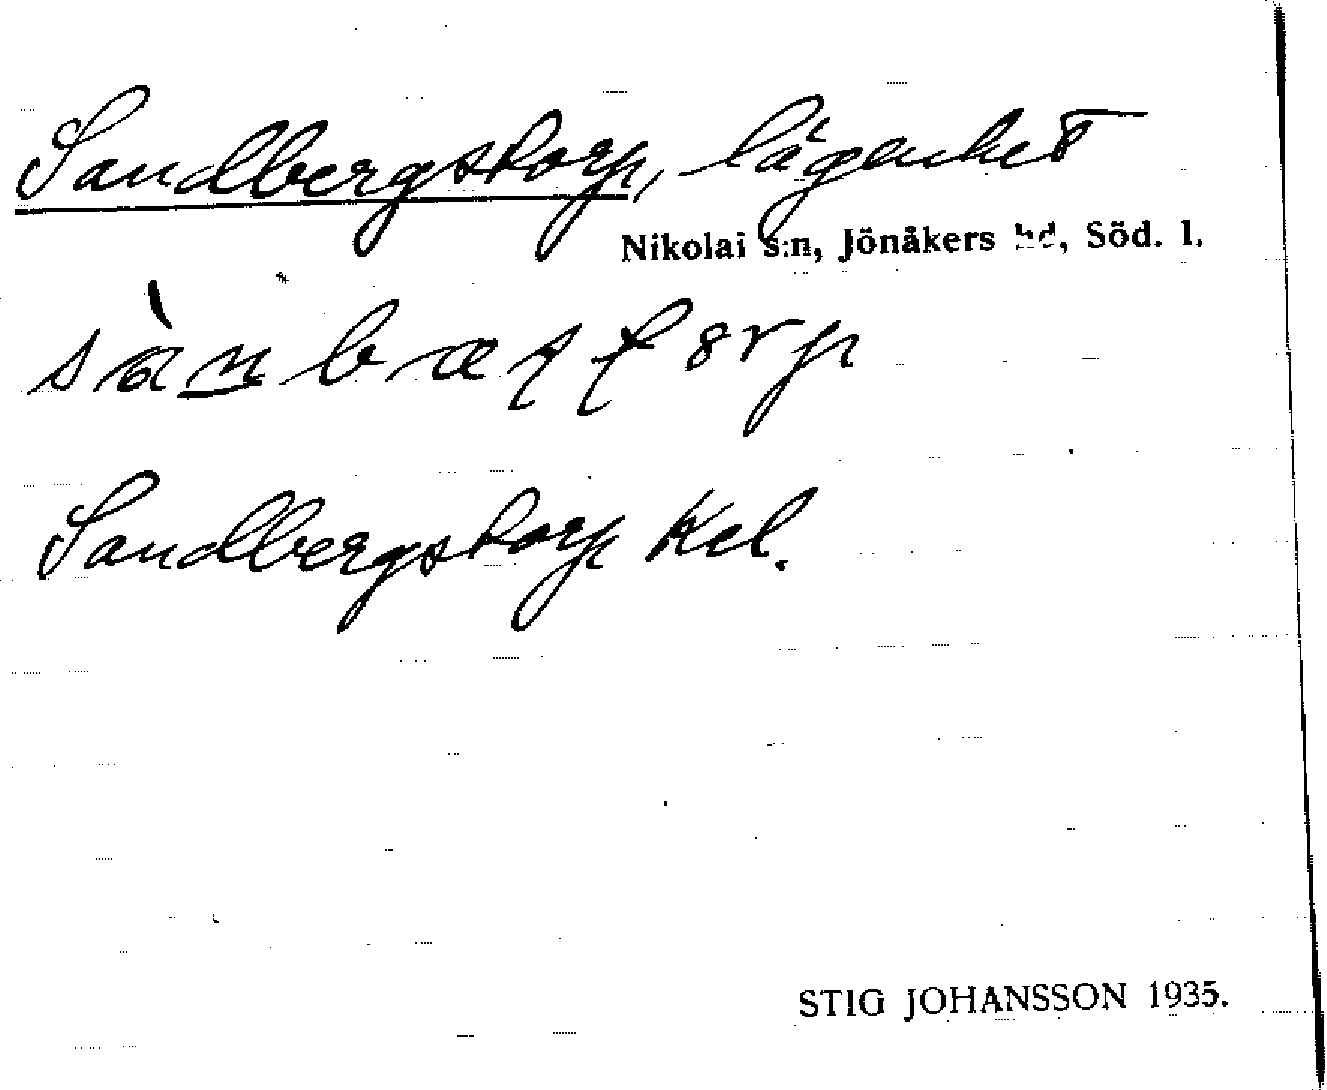 Sandbergstorp, lägenhet
Nikolai s:n, Jönåkers hd, Söd. l.
Sandbergstorp Kel.
STIG JOHANSSON 1935.